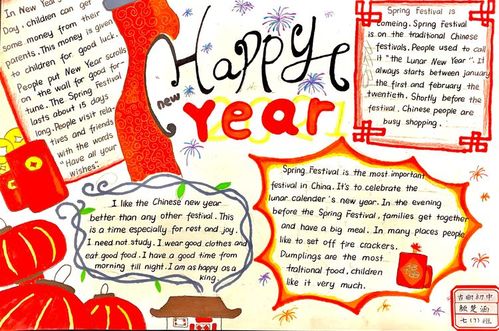 In New Year's
Day, children can get
some money from their
parents. This money is given
to children for good luck.
People put New Year scrolls
on the wall for good for-
tune. The Spring Festival
lasts about 15 days
long. People visit rela-
tives and friends
with the words
"Have all your
wishes".
Happy
new
Year
Spring Festival is
comeing. Spring Festival
is on the traditional Chinese
festivals. People used to call
it "the Lunar New Year". It
always starts between january
the first and february the
twentieth. Shortly before the
festival. Chinese people are
busy shopping.
I like the Chinese new year
better than any other festival. This
is a time especially for rest and joy.
I need not study. I wear good clothes and
eat good food. I have a good time from
morning till night. I am as happy as a
king.
Spring Festival is the most important
festival in China. It's to celebrate the
lunar calender's new year. In the evening
before the Spring Festival, families get together
and have a big meal. In many places people
like to set off fire crackers.
Dumplings are the most
traltional food, children
like it very much.
七(7)班